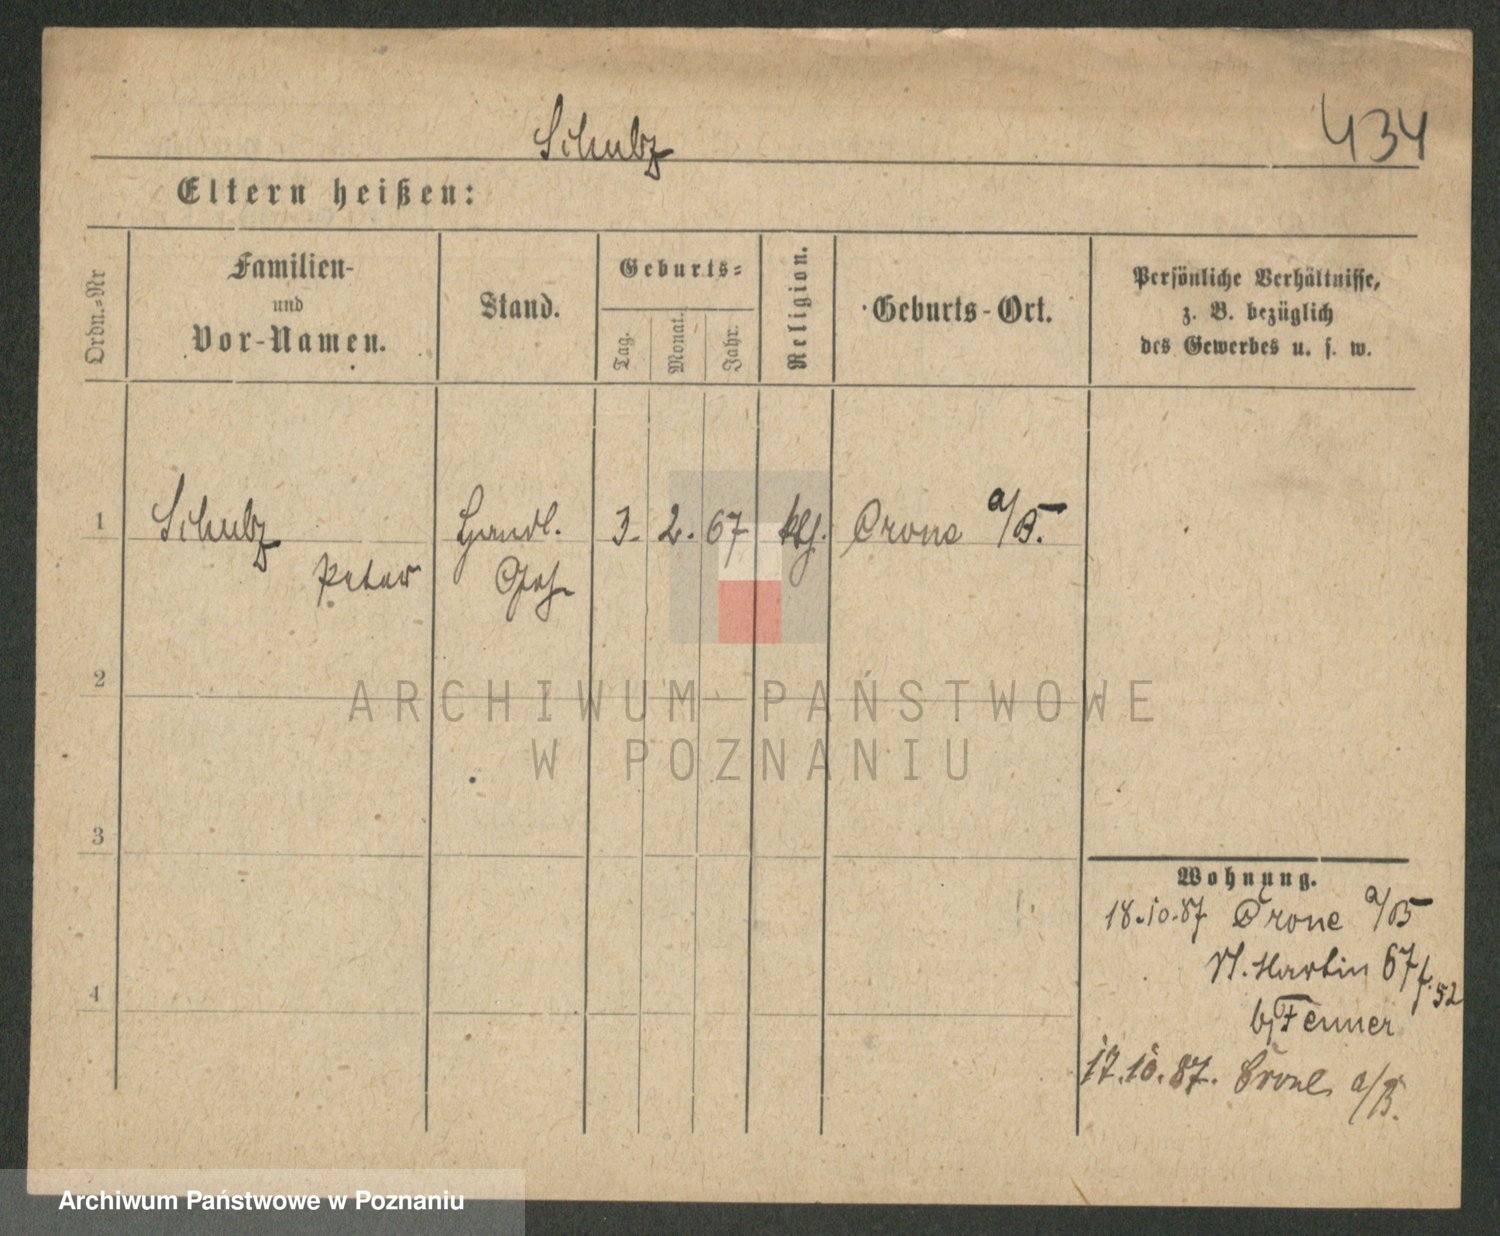 Schulz
434
Eltern heißen:
Ordn.=Nr
Familien-
und
Vor-Namen.
Stand.
Geburts=
Tag.
Monat.
Jahr.
Religion.
Geburts-Ort.
Persönliche Verhältnisse,
z. B. bezüglich
des Gewerbes u. s. w.
1
Schulz
Peter
Handl.
Geh.
3.
2.
67
kth.
Crone a/B.
2
3
4
Wohnung.
18.10.87 Crone a/B
St. Martin 67
f. 52
bj Fenner
17.10.87. Crone a/B.
ARCHIWUM PAŃSTWOWE
W POZNANIU
Archiwum Państwowe w Poznaniu